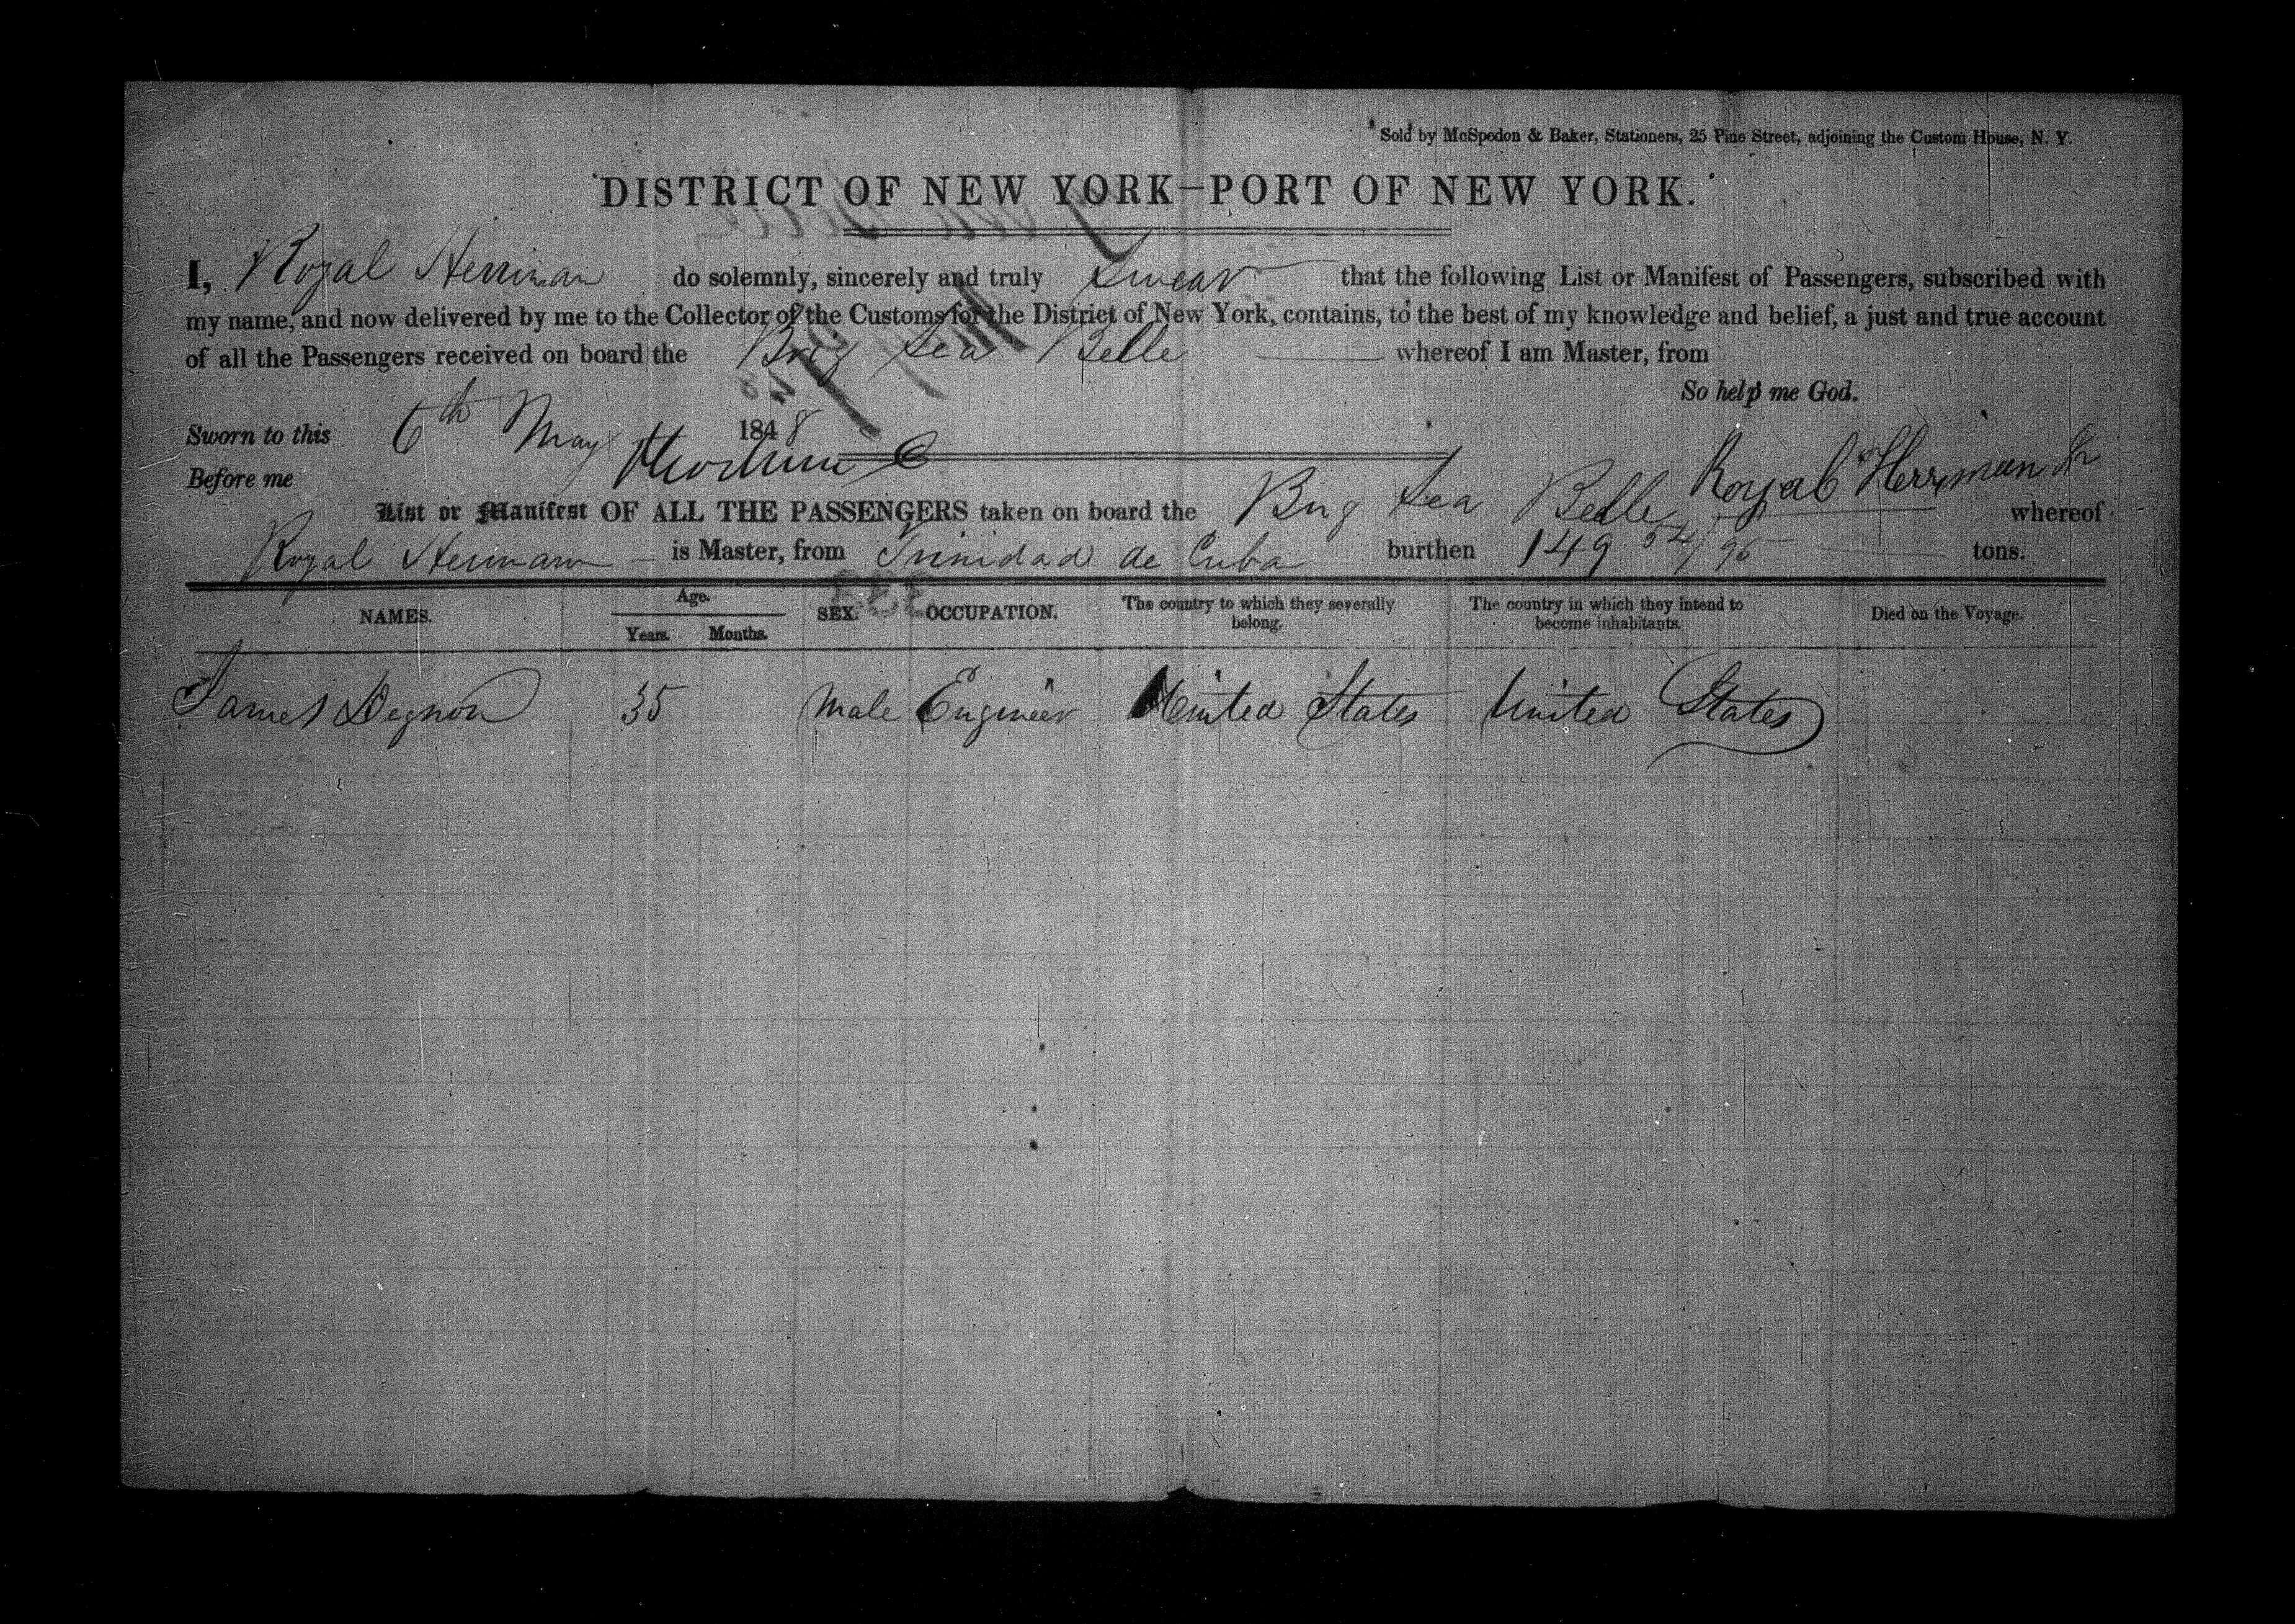 Sold by McSpedon & Baker, Stationers, 25 Pine Street, adjoining the Custom House, N. Y.
DISTRICT OF NEW YORK—PORT OF NEW YORK.
I, Royal Herriman do solemnly, sincerely and truly Swear that the following List or Manifest of Passengers, subscribed with
my name, and now delivered by me to the Collector of the Customs for the District of New York, contains, to the best of my knowledge and belief, a just and true account
of all the Passengers received on board the Brig Sea Belle whereof I am Master, from
So help me God.
Sworn to this 6th May 1848
Before me
Royal Herriman Jr
List or Manifest OF ALL THE PASSENGERS taken on board the Brig Sea Belle whereof
Royal Herriman is Master, from Trinidad de Cuba burthen 149 54/95 tons.
NAMES. Age. Years. Months. SEX. OCCUPATION. The country to which they severally belong. The country in which they intend to become inhabitants. Died on the Voyage.
James Degnon 35 Male Engineer United States United States